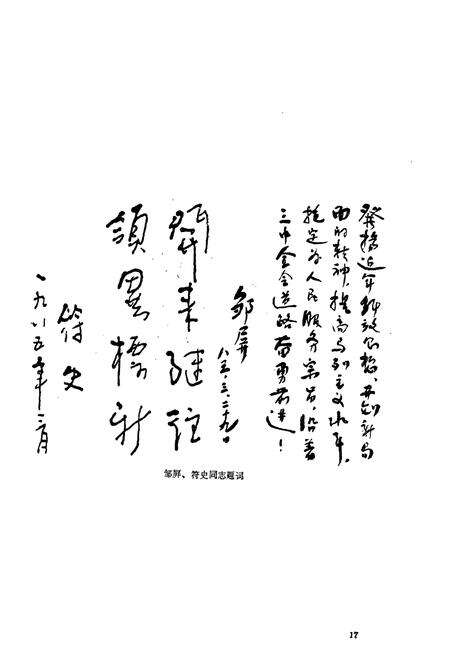 發揚近年解放思想、开创新局
面的精神,提高马列主义水平,
抱定为人民服务宗旨,沿着
三中全会道路奋勇前进!
邹屏
八五、三、二十九
開来继往
領異標新
符史
一九八五年三月
邹屏、符史同志题词
17